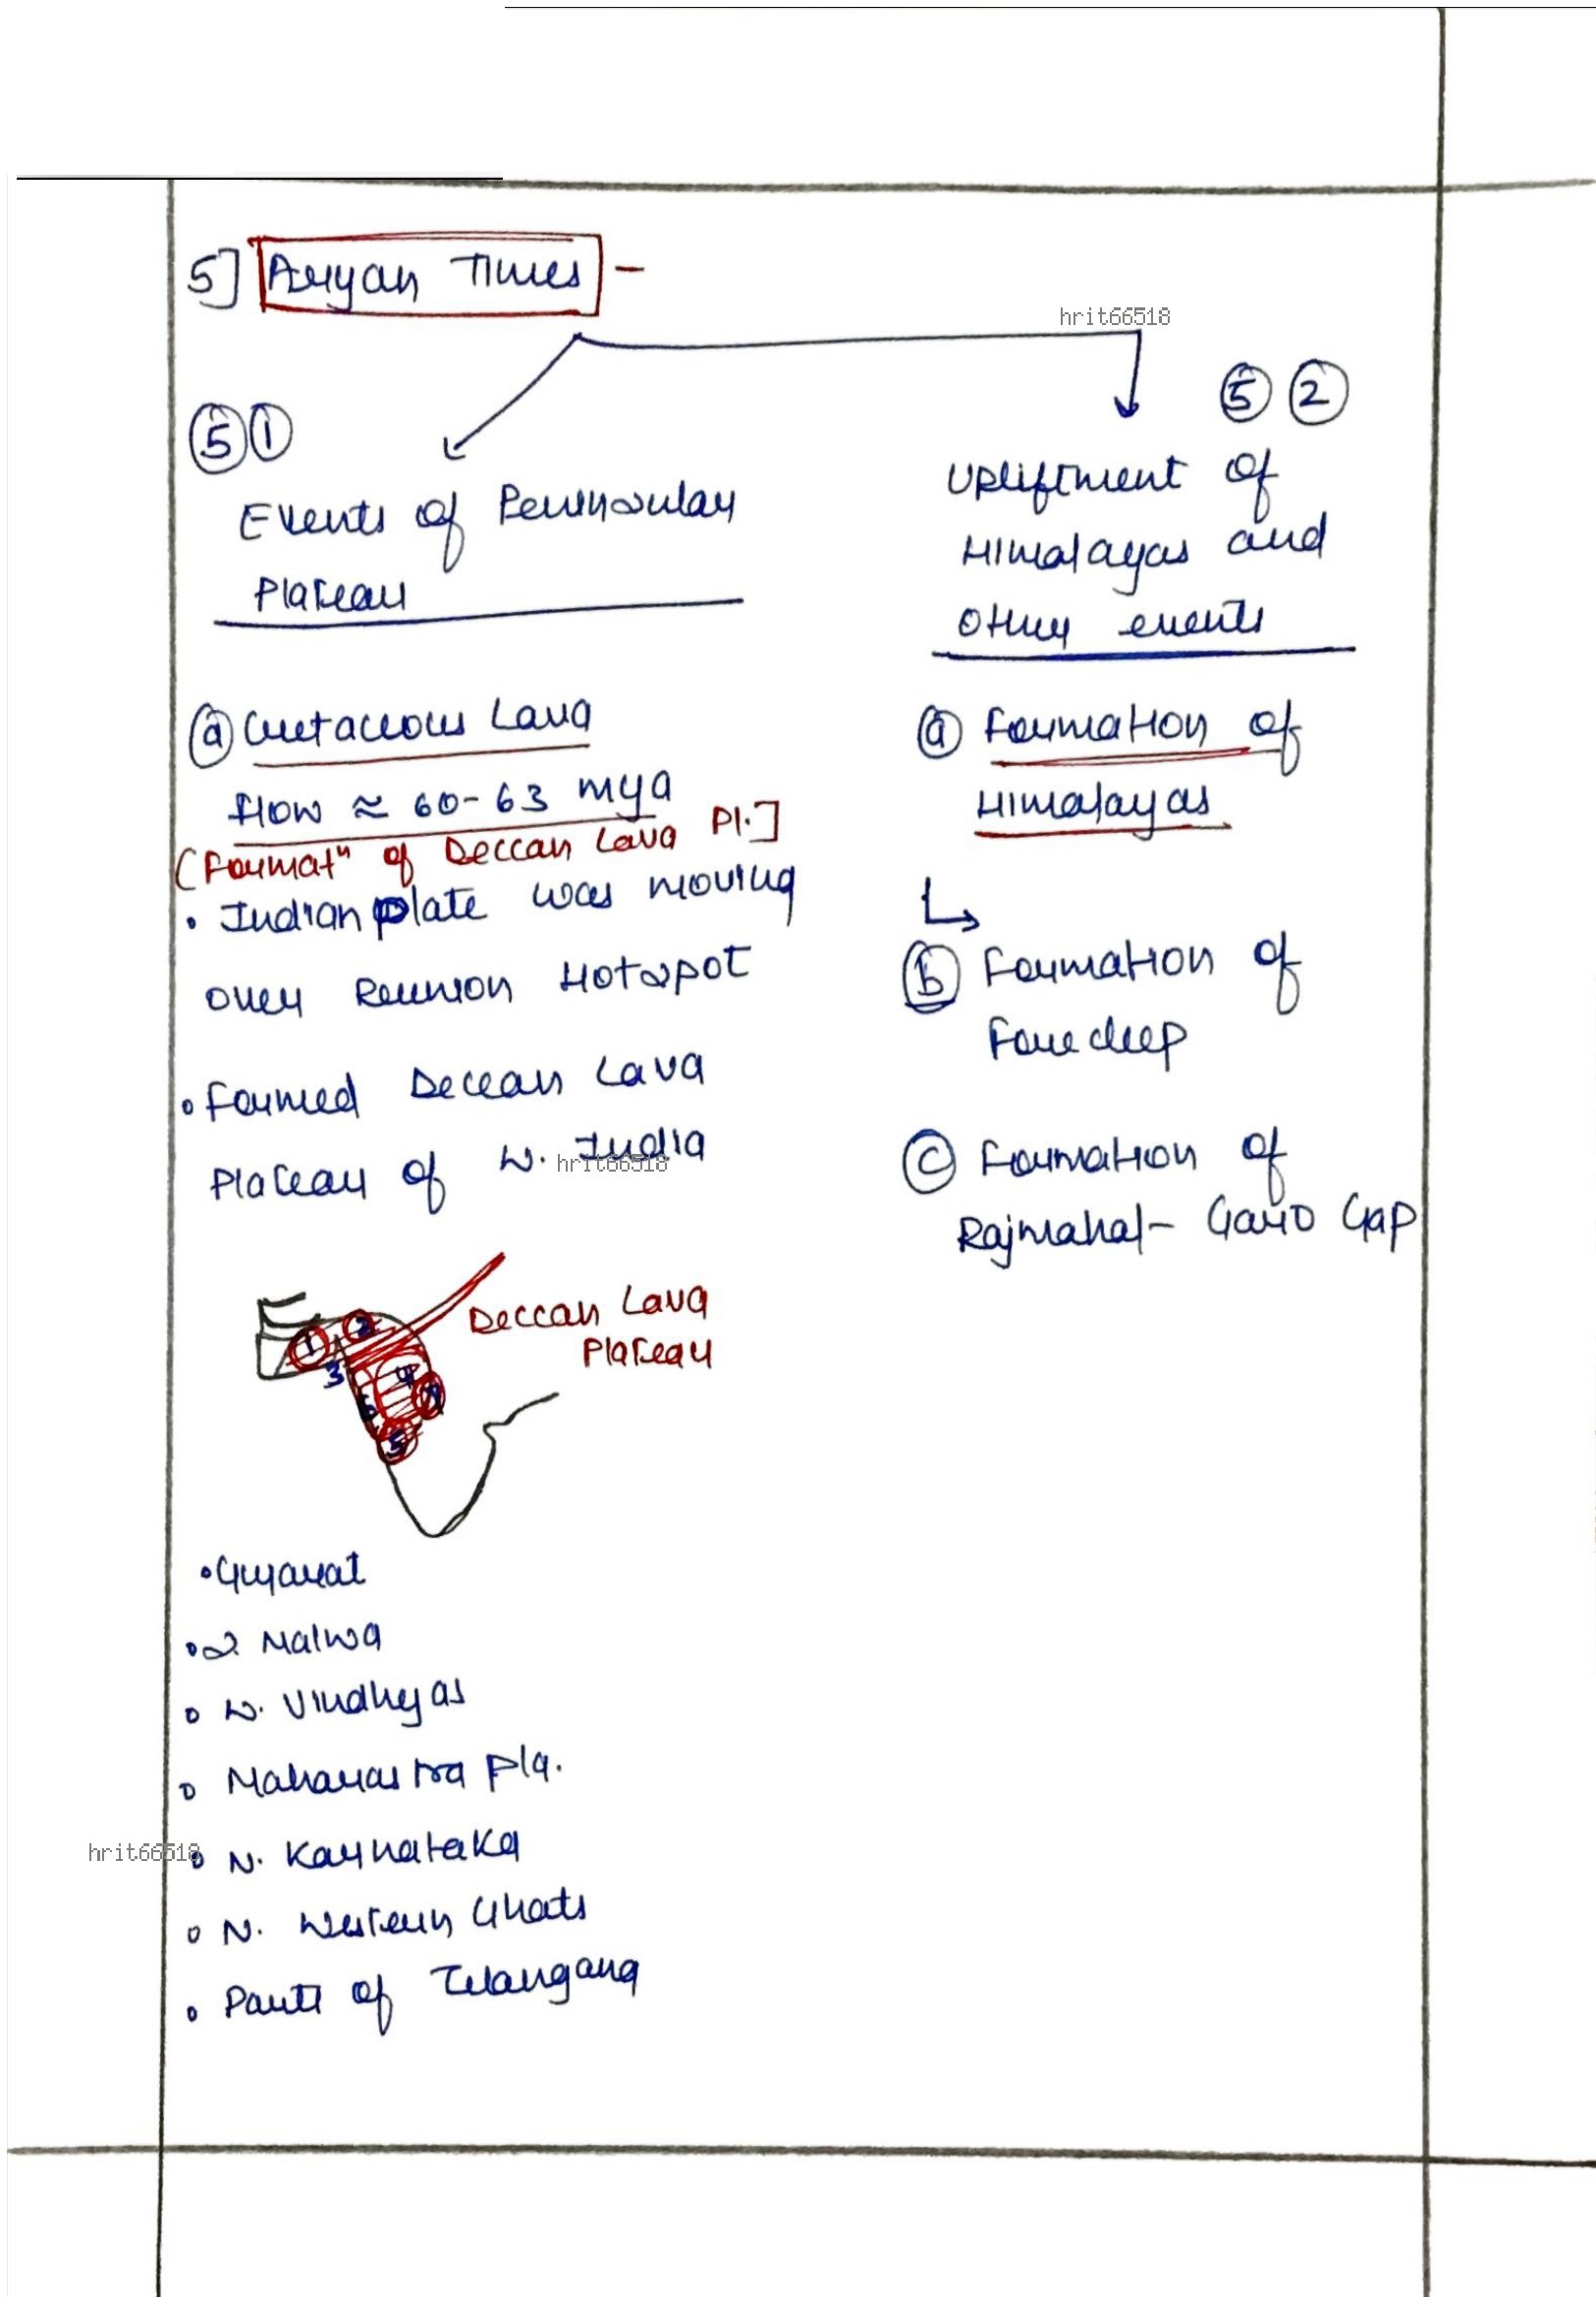 5] Aryan Times -
hrit66518
5 1
Events of Peninsular
Plateau
a Cretaceous Lava
flow ≈ 60-63 mya
(Formatⁿ of Deccan Lava Pl.]
• Indian plate was moving
over Reunion Hotspot
• Formed Deccan Lava
Plateau of W. India
hrit66518
Deccan Lava
Plateau
1
2
3
4
7
6
5
• Gujarat
• S. Malwa
• W. Vindhyas
• Maharastra Pla.
hrit66518
• N. Karnataka
• N. Western Ghats
• Parts of Telangana
5 2
Upliftment of
Himalayas and
Other events
a Formation of
Himalayas
b Formation of
Foredeep
c Formation of
Rajmahal- Garo Gap